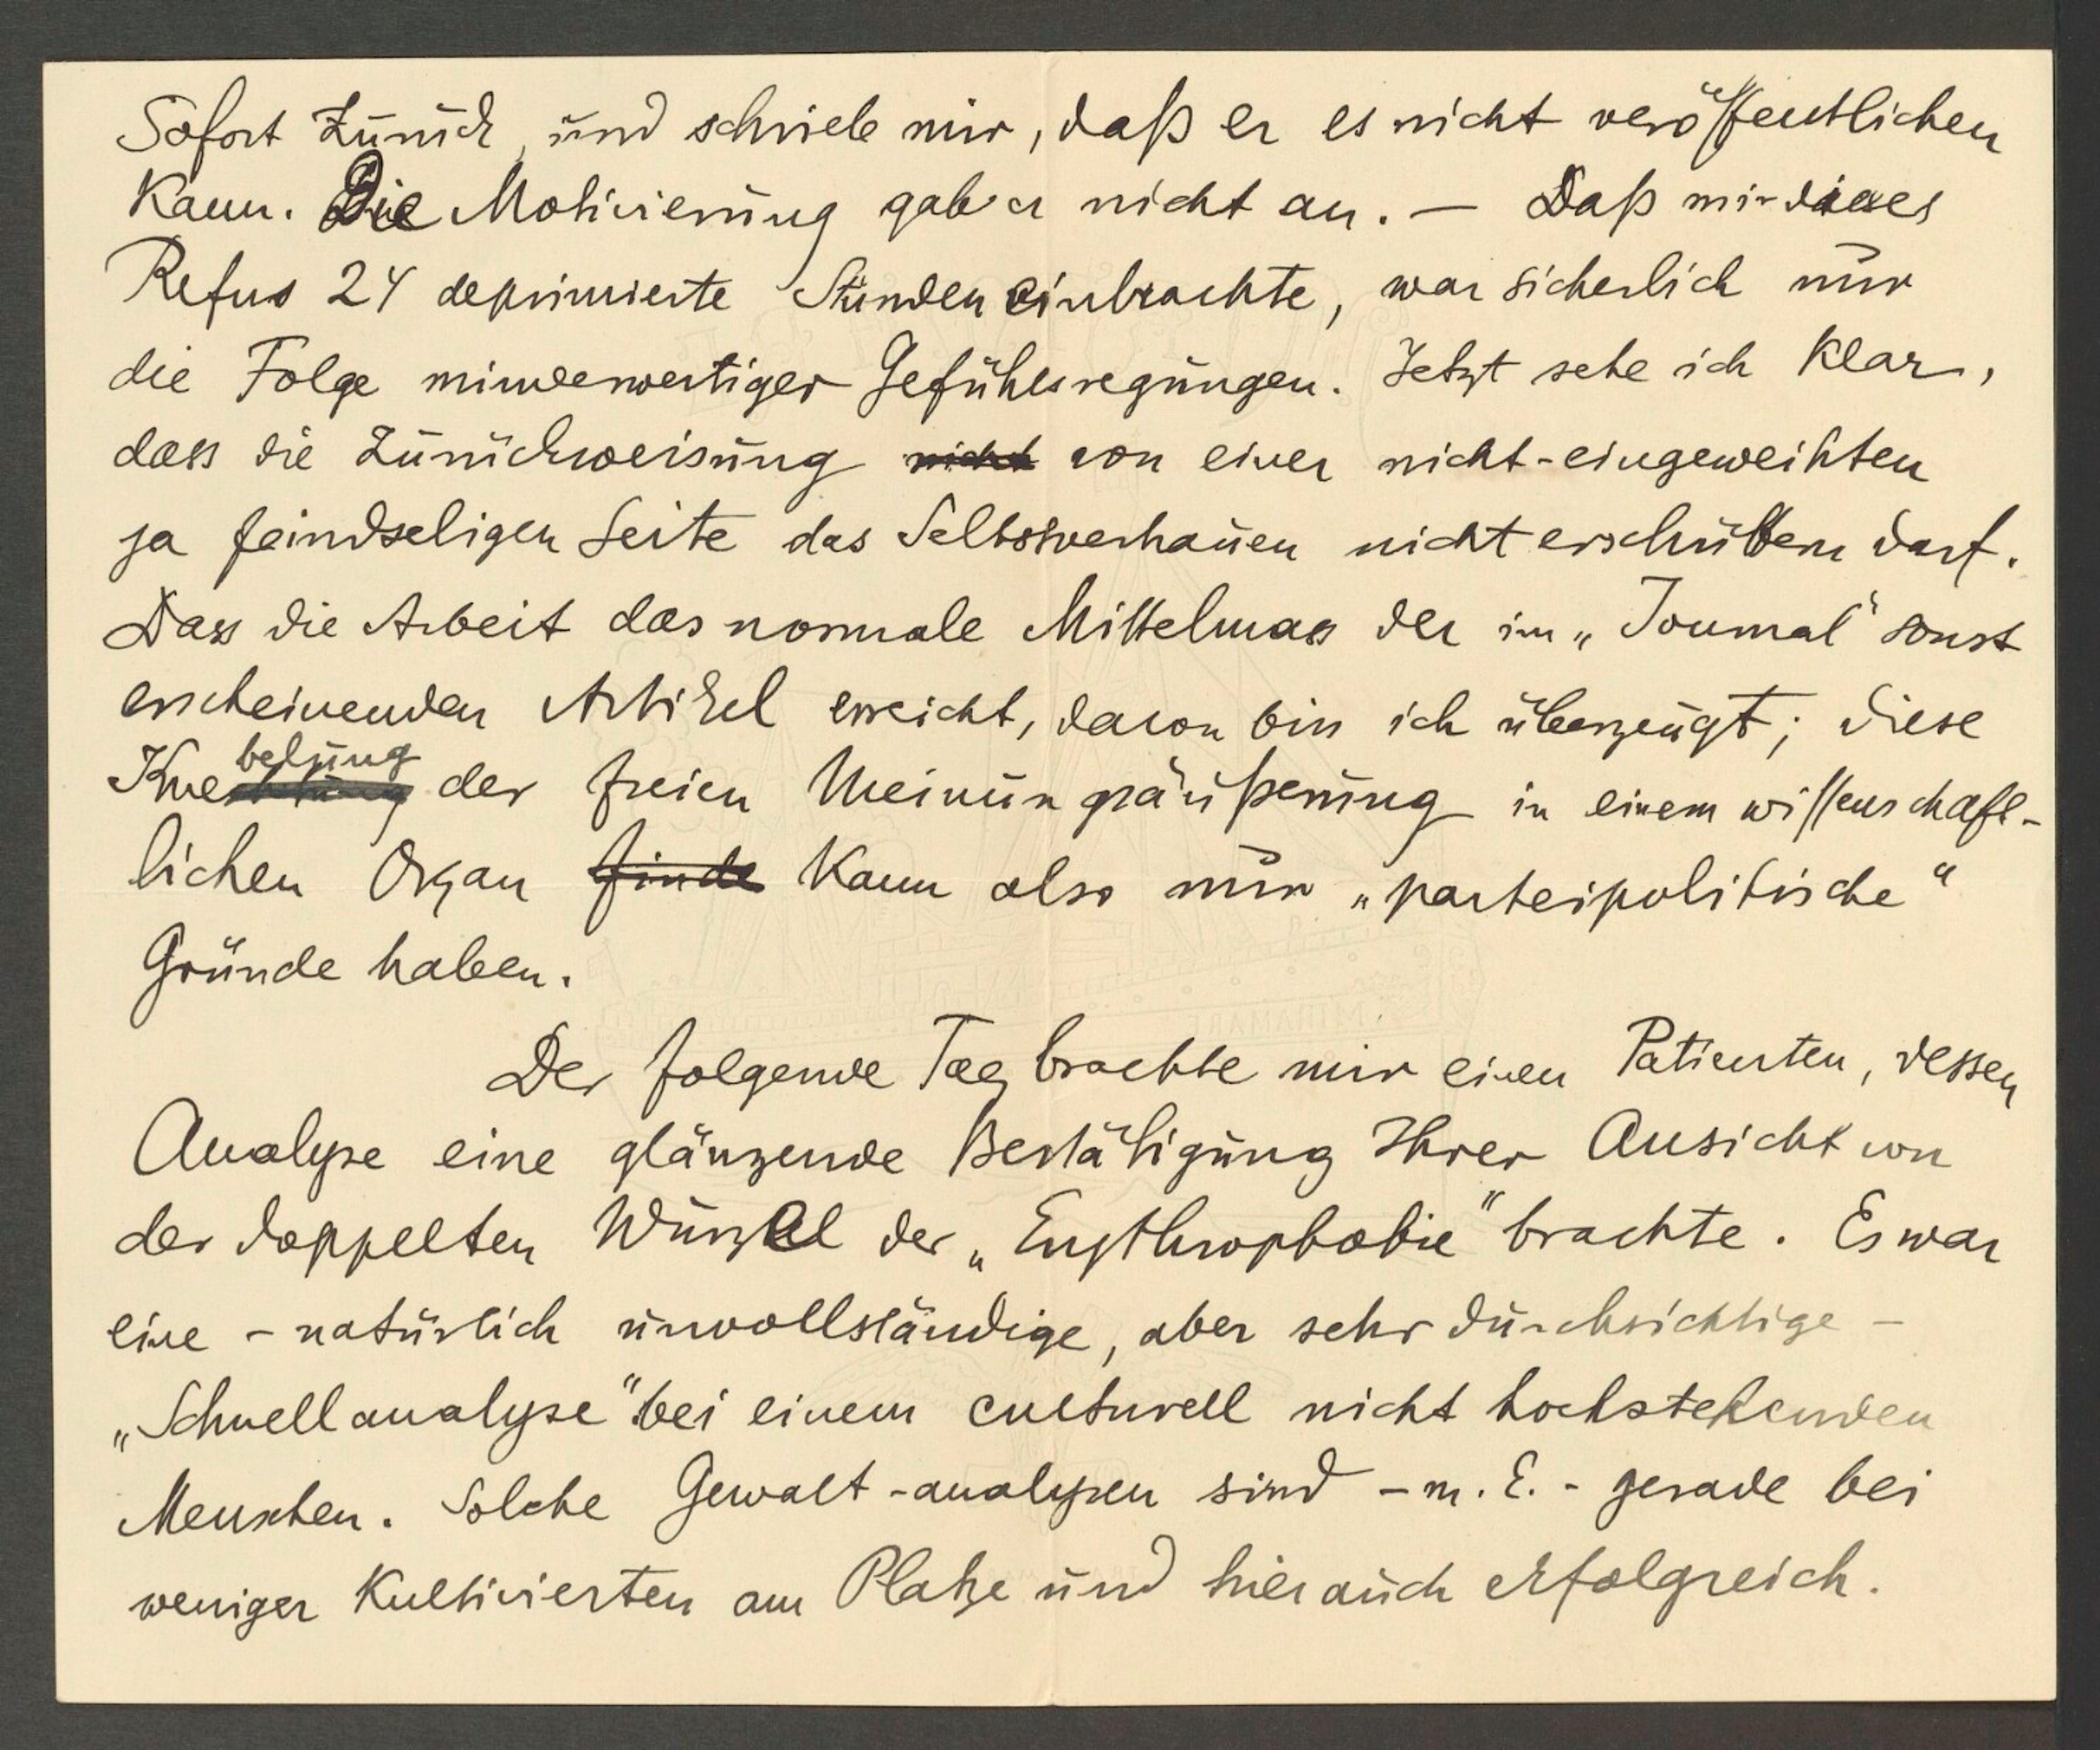 Sofort zurück, und schrieb mir, daß er es nicht veröffentlichen
kann. Die Motivierung gab er nicht an. — Daß mir dieses
Refus 24 deprimierte Stunden einbrachte, war sicherlich nur
die Folge minderwertiger Gefühlsregungen. Jetzt sehe ich klar,
dass die Zurückweisung nicht von einer nicht-eingeweihten
ja feindseligen Seite das Selbstvertrauen nicht erschüttern darf.
Dass die Arbeit das normale Mittelmass der im „Journal" sonst
erscheinenden Artikel erreicht, davon bin ich überzeugt; diese
Knebelung der freien Meinungsäußerung in einem wissenschaft-
lichen Organ finde kann also nur „parteipolitische"
Gründe haben.
Der folgende Tag brachte mir einen Patienten, dessen
Analyse eine glänzende Bestätigung Ihrer Ansicht von
der doppelten Wurzel der „Erythrophobie" brachte. Es war
eine - natürlich unvollständige, aber sehr durchsichtige -
„Schnellanalyse" bei einem culturell nicht hochstehenden
Menschen. Solche Gewalt-analysen sind - m. E. - gerade bei
weniger Kultivierten am Platze und hier auch erfolgreich.